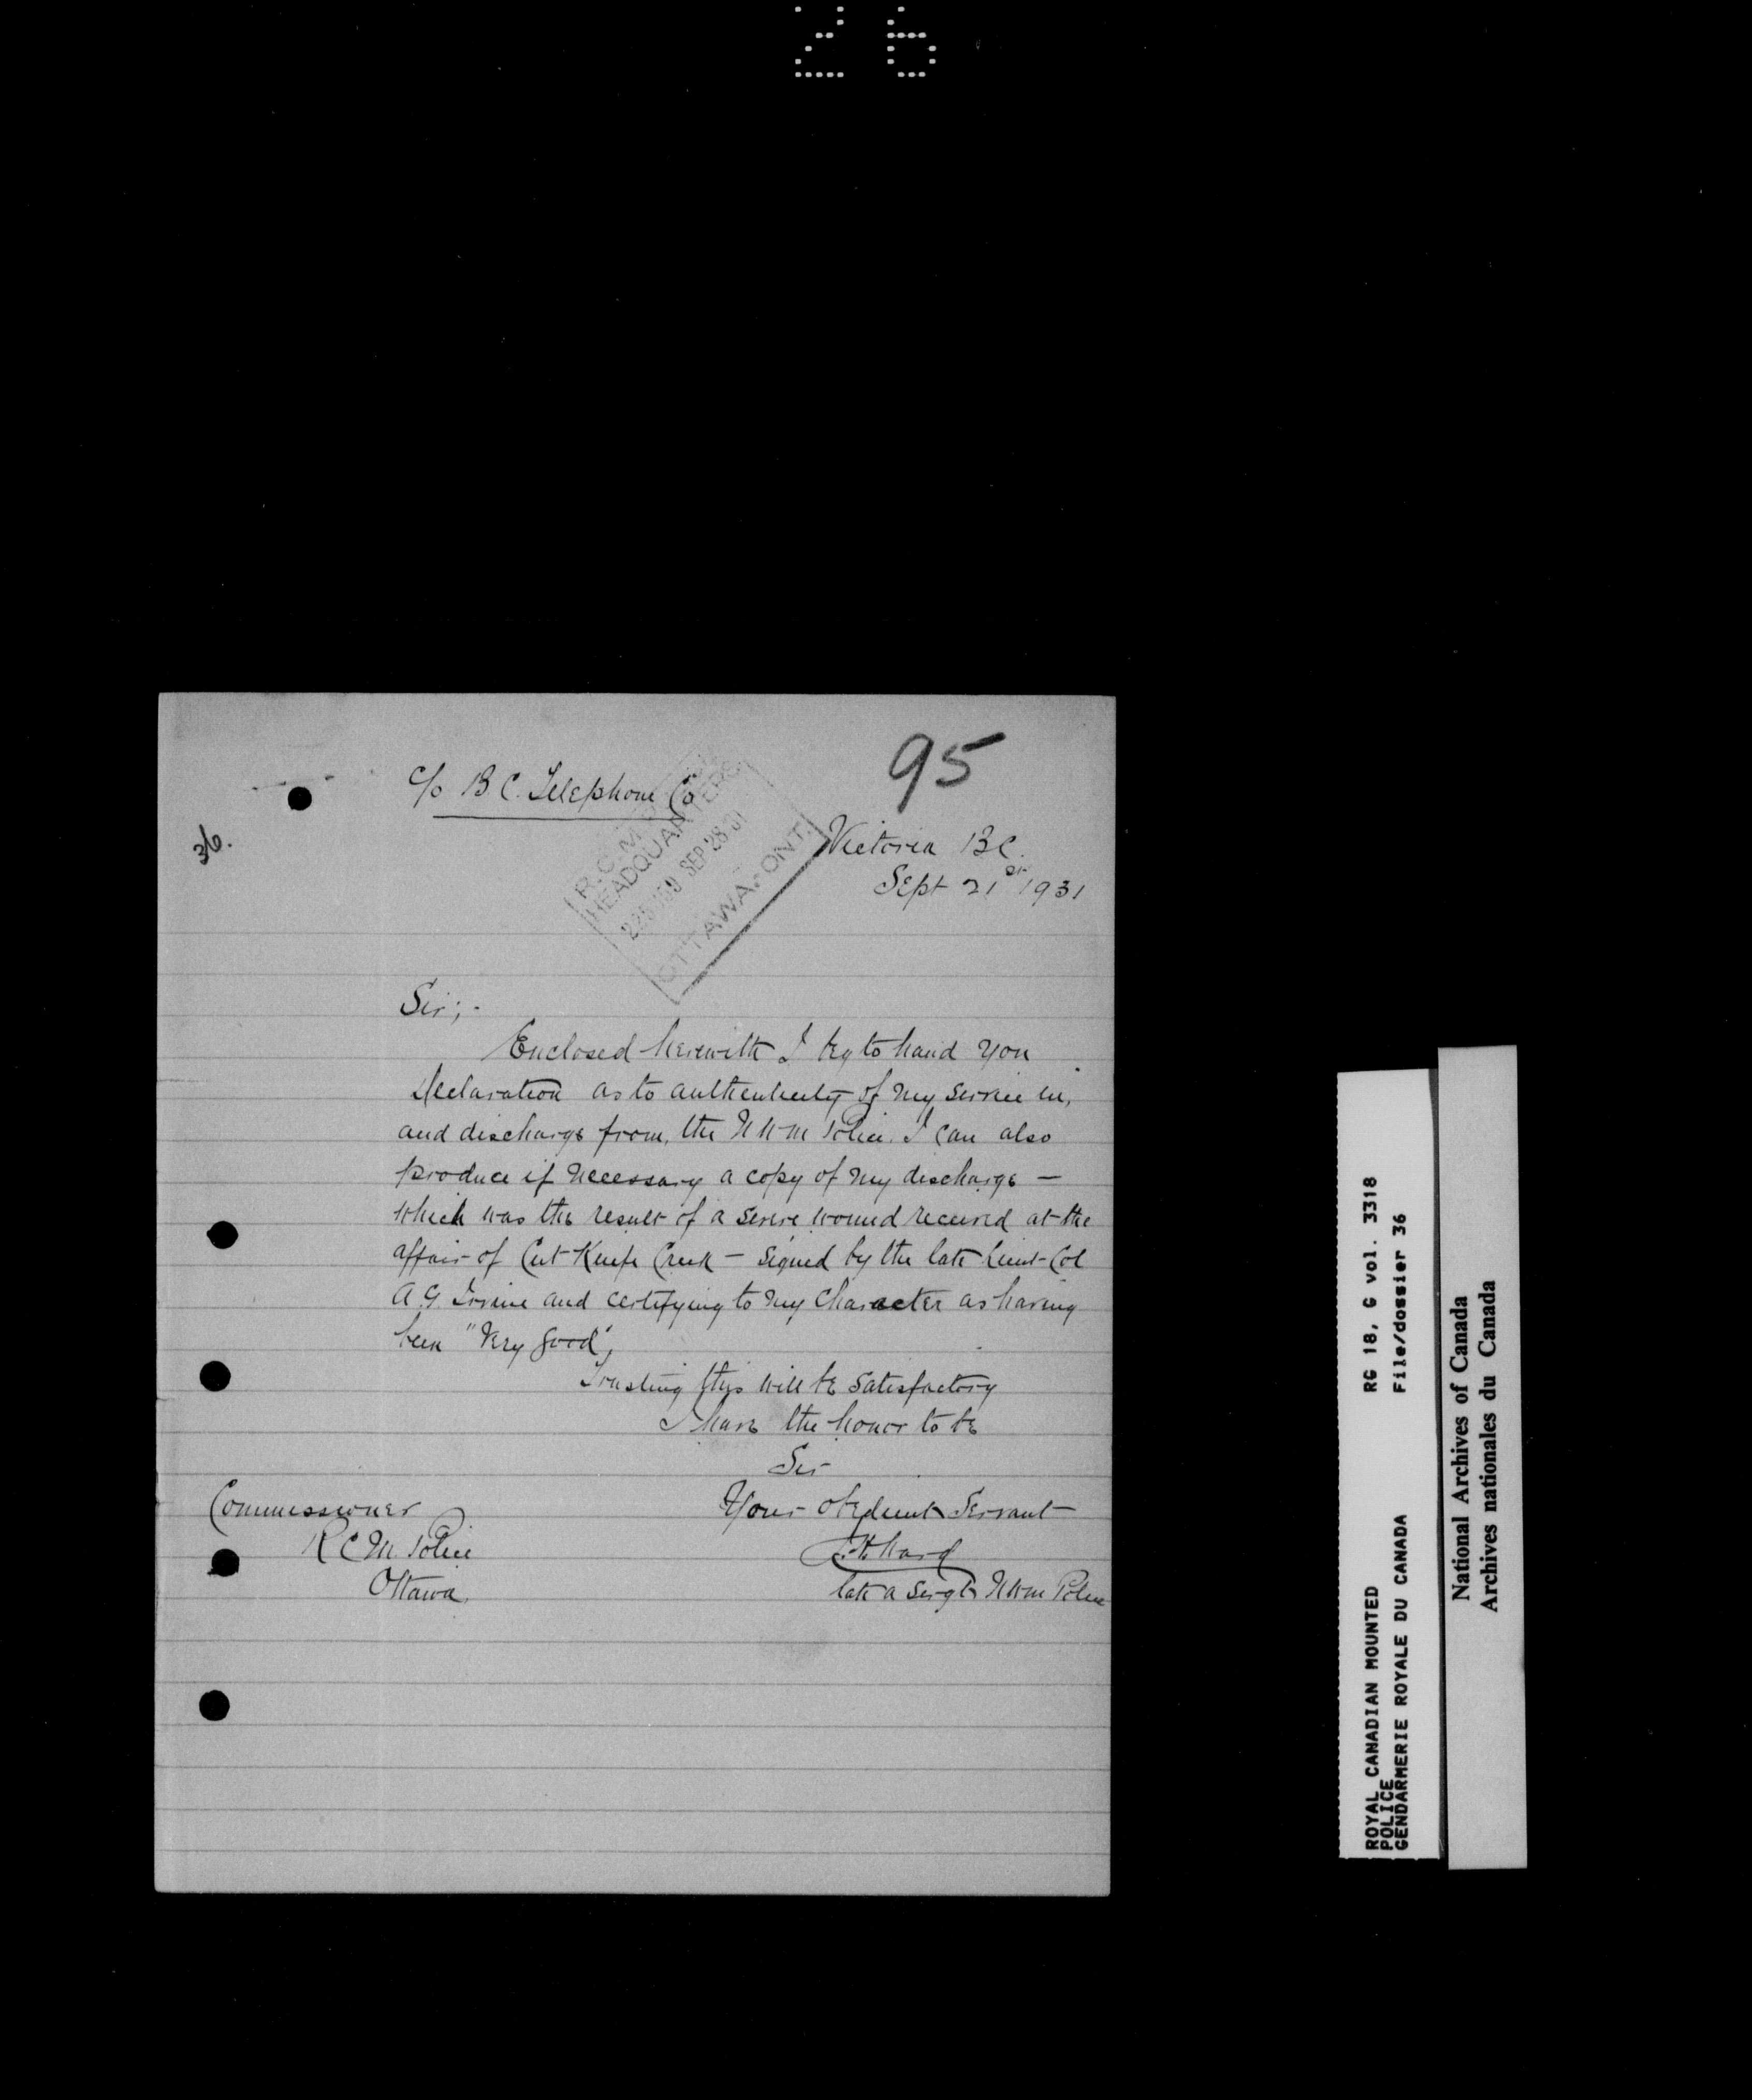 26
95
c/o B C. Telephone Co
36.
R.C.M.P.
HEADQUARTERS
SEP 28 31
OTTAWA. ONT.
Victoria BC.
Sept 21st 1931
Sir;-
Enclosed herewith I beg to hand you
Declaration as to authenticity of my service in,
and discharge from, the N W M Police. I can also
produce if necessary a copy of my discharge —
which was the result of a severe wound received at the
affair of Cut Knife Creek — signed by the late Lieut-Col
A. G. Irvine and certifying to my character as having
been "Very Good",
Trusting this will be satisfactory
I have the honor to be
Sir
Your obedient Servant
Ward
late a Sergt N W M Police
Commissioner
R C M. Police
Ottawa,
ROYAL CANADIAN MOUNTED
POLICE
GENDARMERIE ROYALE DU CANADA
RG 18, G vol. 3318
File/dossier 36
National Archives of Canada
Archives nationales du Canada